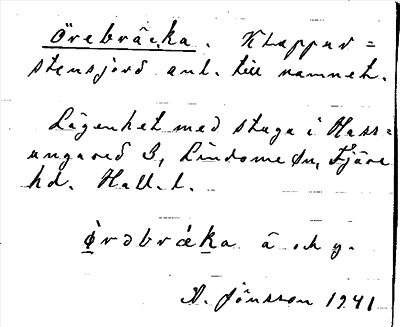 Örebräcka. Klapper=
stensjord anl. till namnet.
Lägenhet med stuga i Hass=
ungared 3, Lindome sn, Fjäre
hd. Hall. l.
ö̀rəbrǽka ä och y.
A. Jönsson 1941